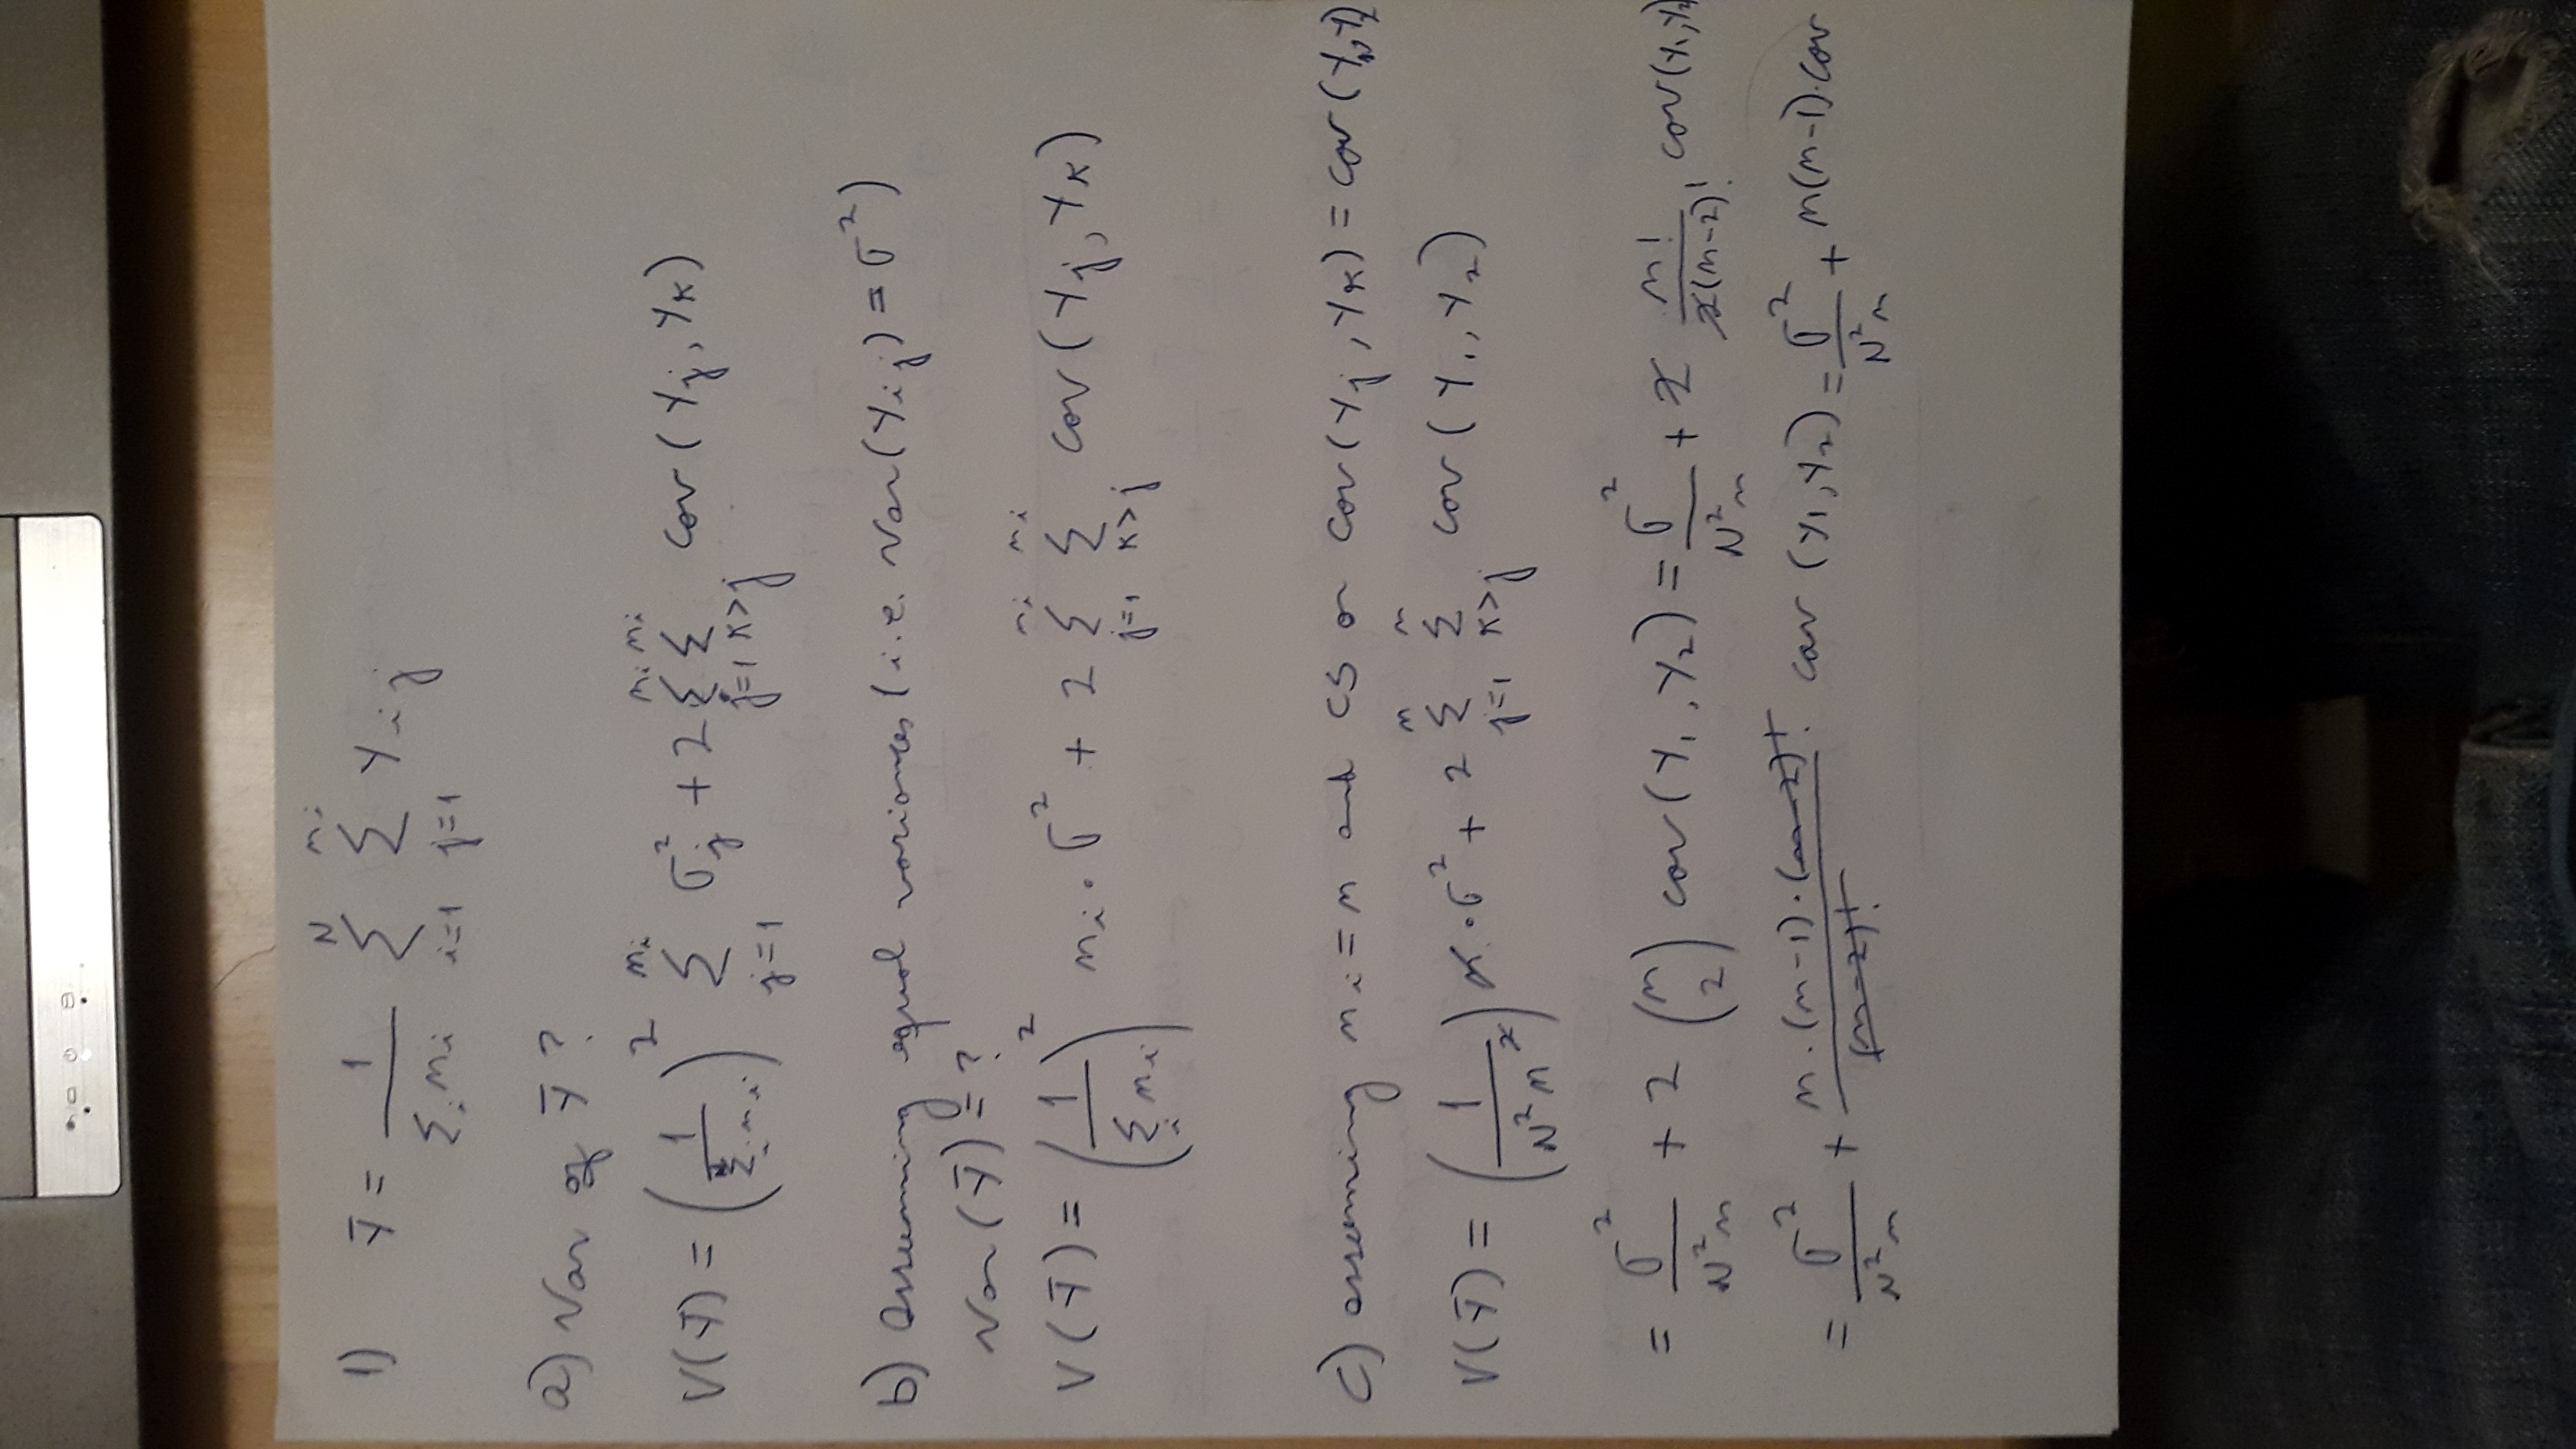 1) Ȳ = 1/(Σ_i n_i) Σ_{i=1}^{N} Σ_{j=1}^{n_i} Y_{ij}
a) Var of Ȳ?
V(Ȳ) = (1/(Σ_i n_i))^2 Σ_{j=1}^{n_i} σ_j^2 + 2 Σ_{j=1}^{n_i} Σ_{k>j}^{n_i} cov(Y_j, Y_k)
b) Assuming equal variances (i.e. Var(Y_{ij}) = σ^2)
Var(Ȳ) = ?
V(Ȳ) = (1/(Σ_i n_i))^2 n_i · σ^2 + 2 Σ_{j=1}^{n_i} Σ_{k>j}^{n_i} cov(Y_j, Y_k)
c) assuming n_i = n and CS or cov(Y_j, Y_k) = cov(Y_1, Y_2)
V(Ȳ) = (1/(N^2 n^2)) n · σ^2 + 2 Σ_{j=1}^{n} Σ_{k>j}^{n} cov(Y_1, Y_2)
= σ^2/(N^2 n) + 2 (n 2) cov(Y_1, Y_2) = σ^2/(N^2 n) + 2 n!/(2(n-2)!) cov(Y_1, Y_2)
= σ^2/(N^2 n) + n·(n-1)·(n-2)!/(n-2)! · cov(Y_1, Y_2) = σ^2/(N^2 n) + n(n-1)·cov